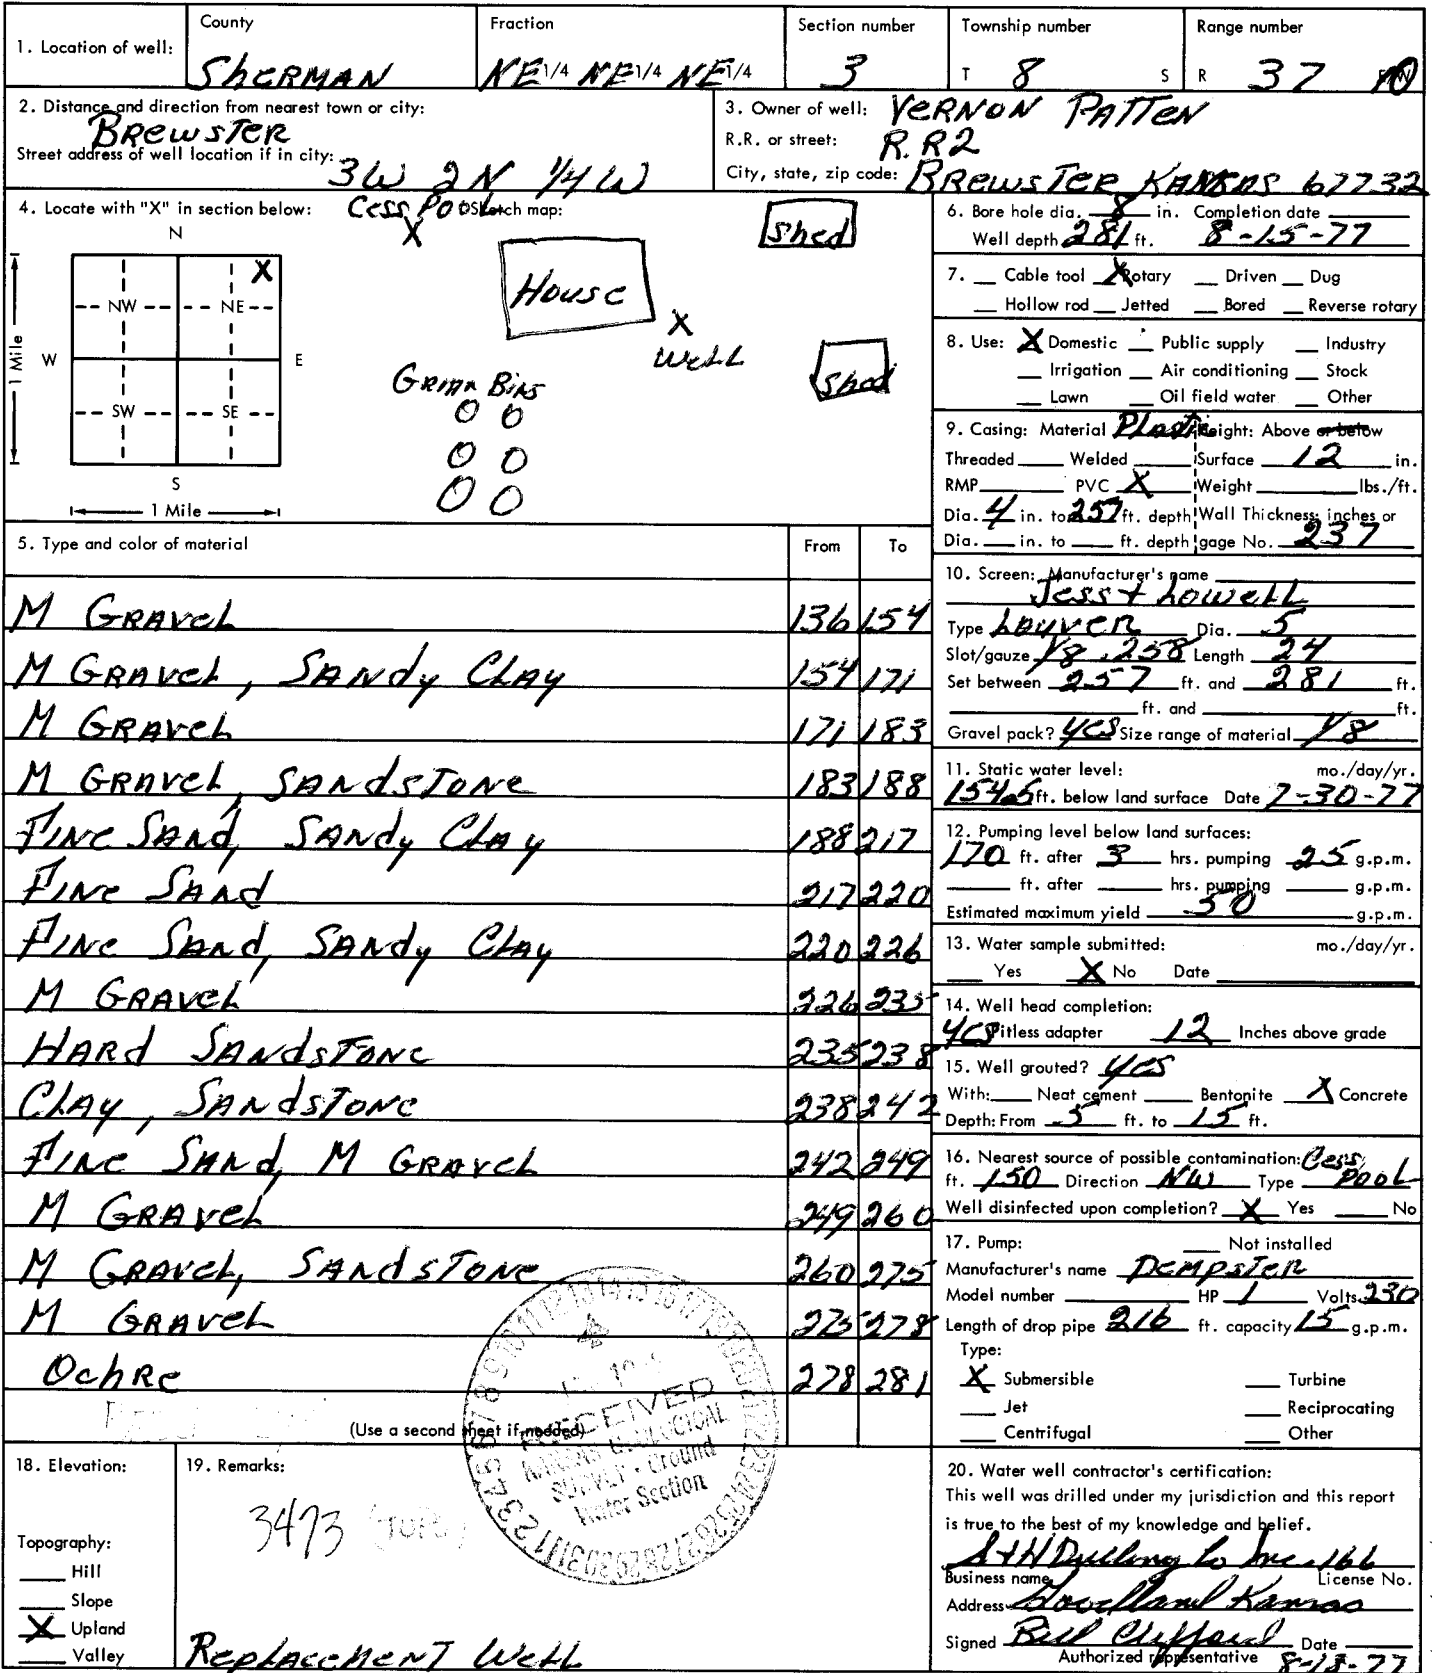 1. Location of well:
County
SHERMAN
Fraction
NE 1/4 NE 1/4 NE 1/4
Section number
3
Township number
T 8 S
Range number
R 37
2. Distance and direction from nearest town or city:
BREWSTER
Street address of well location if in city:
3W 2N 1/4 W
3. Owner of well: VERNON PATTEN
R.R. or street: R.R2
City, state, zip code: BREWSTER KANSAS 67732
4. Locate with "X" in section below:
Sketch map:
Cess Pool
X
N
X
NW NE
W E
SW SE
S
1 Mile
1 Mile
House
Shed
X
Well
Shed
Grian Bins
5. Type and color of material From To
M GRAVEL 136 154
M GRAVEL, SANDy CLAy 154 171
M GRAVEL 171 183
M GRAVEL, SANDSTONE 183 188
FINE SAND, SANDy CLAy 188 217
FINE SAND 217 220
FINE SAND, SANDy CLAy 220 226
M GRAVEL 226 235
HARD SANDSTONE 235 238
CLAY, SANDSTONE 238 242
FINE SAND, M GRAVEL 242 249
M GRAVEL 249 260
M GRAVEL, SANDSTONE 260 275
M GRAVEL 275 278
OchRe 278 281
(Use a second sheet if needed)
RECEIVED
KANSAS GEOLOGICAL
SURVEY - Ground
Water Section
6. Bore hole dia. 8 in. Completion date
Well depth 281 ft. 8-15-77
7. Cable tool X Rotary Driven Dug
Hollow rod Jetted Bored Reverse rotary
8. Use: X Domestic Public supply Industry
Irrigation Air conditioning Stock
Lawn Oil field water Other
9. Casing: Material Plastic Height: Above or below
Threaded Welded Surface 12 in.
RMP PVC X Weight lbs./ft.
Dia. 4 in. to 257 ft. depth Wall Thickness: inches or
Dia. in. to ft. depth gage No. 237
10. Screen: Manufacturer's name
Jess + Lowell
Type Louver Dia. 5
Slot/gauze 1/8 .258 Length 24
Set between 257 ft. and 281 ft.
ft. and ft.
Gravel pack? yes Size range of material 1/8
11. Static water level: mo./day/yr.
154.5 ft. below land surface Date 7-30-77
12. Pumping level below land surfaces:
170 ft. after 3 hrs. pumping 25 g.p.m.
ft. after hrs. pumping g.p.m.
Estimated maximum yield 50 g.p.m.
13. Water sample submitted: mo./day/yr.
Yes X No Date
14. Well head completion:
yes Pitless adapter 12 Inches above grade
15. Well grouted? yes
With: Neat cement Bentonite X Concrete
Depth: From 5 ft. to 15 ft.
16. Nearest source of possible contamination: Cess
ft. 150 Direction NW Type Pool
Well disinfected upon completion? X Yes No
17. Pump: Not installed
Manufacturer's name DEMPSTER
Model number HP 1 Volts 230
Length of drop pipe 216 ft. capacity 15 g.p.m.
Type:
X Submersible Turbine
Jet Reciprocating
Centrifugal Other
18. Elevation:
Topography:
Hill
Slope
X Upland
Valley
19. Remarks:
3473
REPLACEMENT WELL
20. Water well contractor's certification:
This well was drilled under my jurisdiction and this report
is true to the best of my knowledge and belief.
S+H Drilling Co Inc. 166
Business name License No.
Address Kansas
Signed Bill Clifford Date
Authorized representative 8-18-77